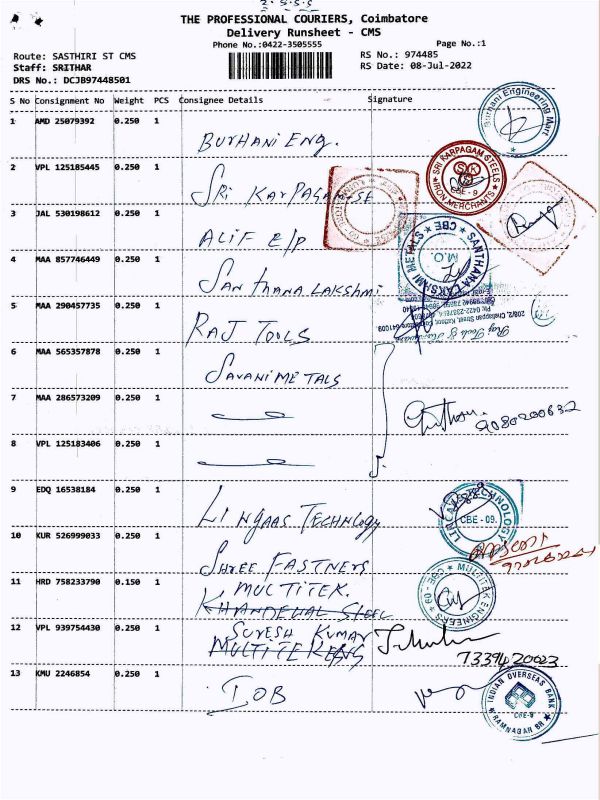 THE PROFESSIONAL COURIERS, Coimbatore
Delivery Runsheet - CMS
Phone No.:0422-3505555
Page No.:1
Route: SASTHIRI ST CMS
RS No.: 974485
Staff: SRITHAR
RS Date: 08-Jul-2022
DRS No.: DCJB97448501
S No Consignment No Weight PCS Consignee Details Signature
1 AMD 25079392 0.250 1
BURHANI ENG.
Burhani Engineering Mart
2 VPL 125185445 0.250 1
SRI KARPAGAM
SRI KARPAGAM STEELS
IRON MERCHANTS
SKS
CBE-9
3 JAL 530198612 0.250 1
ALIF E/P
4 MAA 857746449 0.250 1
SANTHANA LAKSHMI
SANTHANA LAKSHMI METALS
CBE
M.O.
5 MAA 290457735 0.250 1
RAJ TOOLS
Raj Tools & Hardwares
6 MAA 565357878 0.250 1
SAVANI METALS
7 MAA 286573209 0.250 1
9080200632
8 VPL 125183406 0.250 1
9 EDQ 16538184 0.250 1
LINGAAS TECHNLOGY
TECHNOLOGY
CBE - 09.
10 KUR 526999033 0.250 1
SHREE FASTNERS
11 HRD 758233790 0.150 1
MULTITEK.
KHANDEWAL STEEL
MULTITAK ENGINEERS
CBE - 09
12 VPL 939754430 0.250 1
SURESH KUMAR
MULTITEK ENGS
7339420023
13 KMU 2246854 0.250 1
IOB
INDIAN OVERSEAS BANK
CBE-9
RAMNAGAR BR